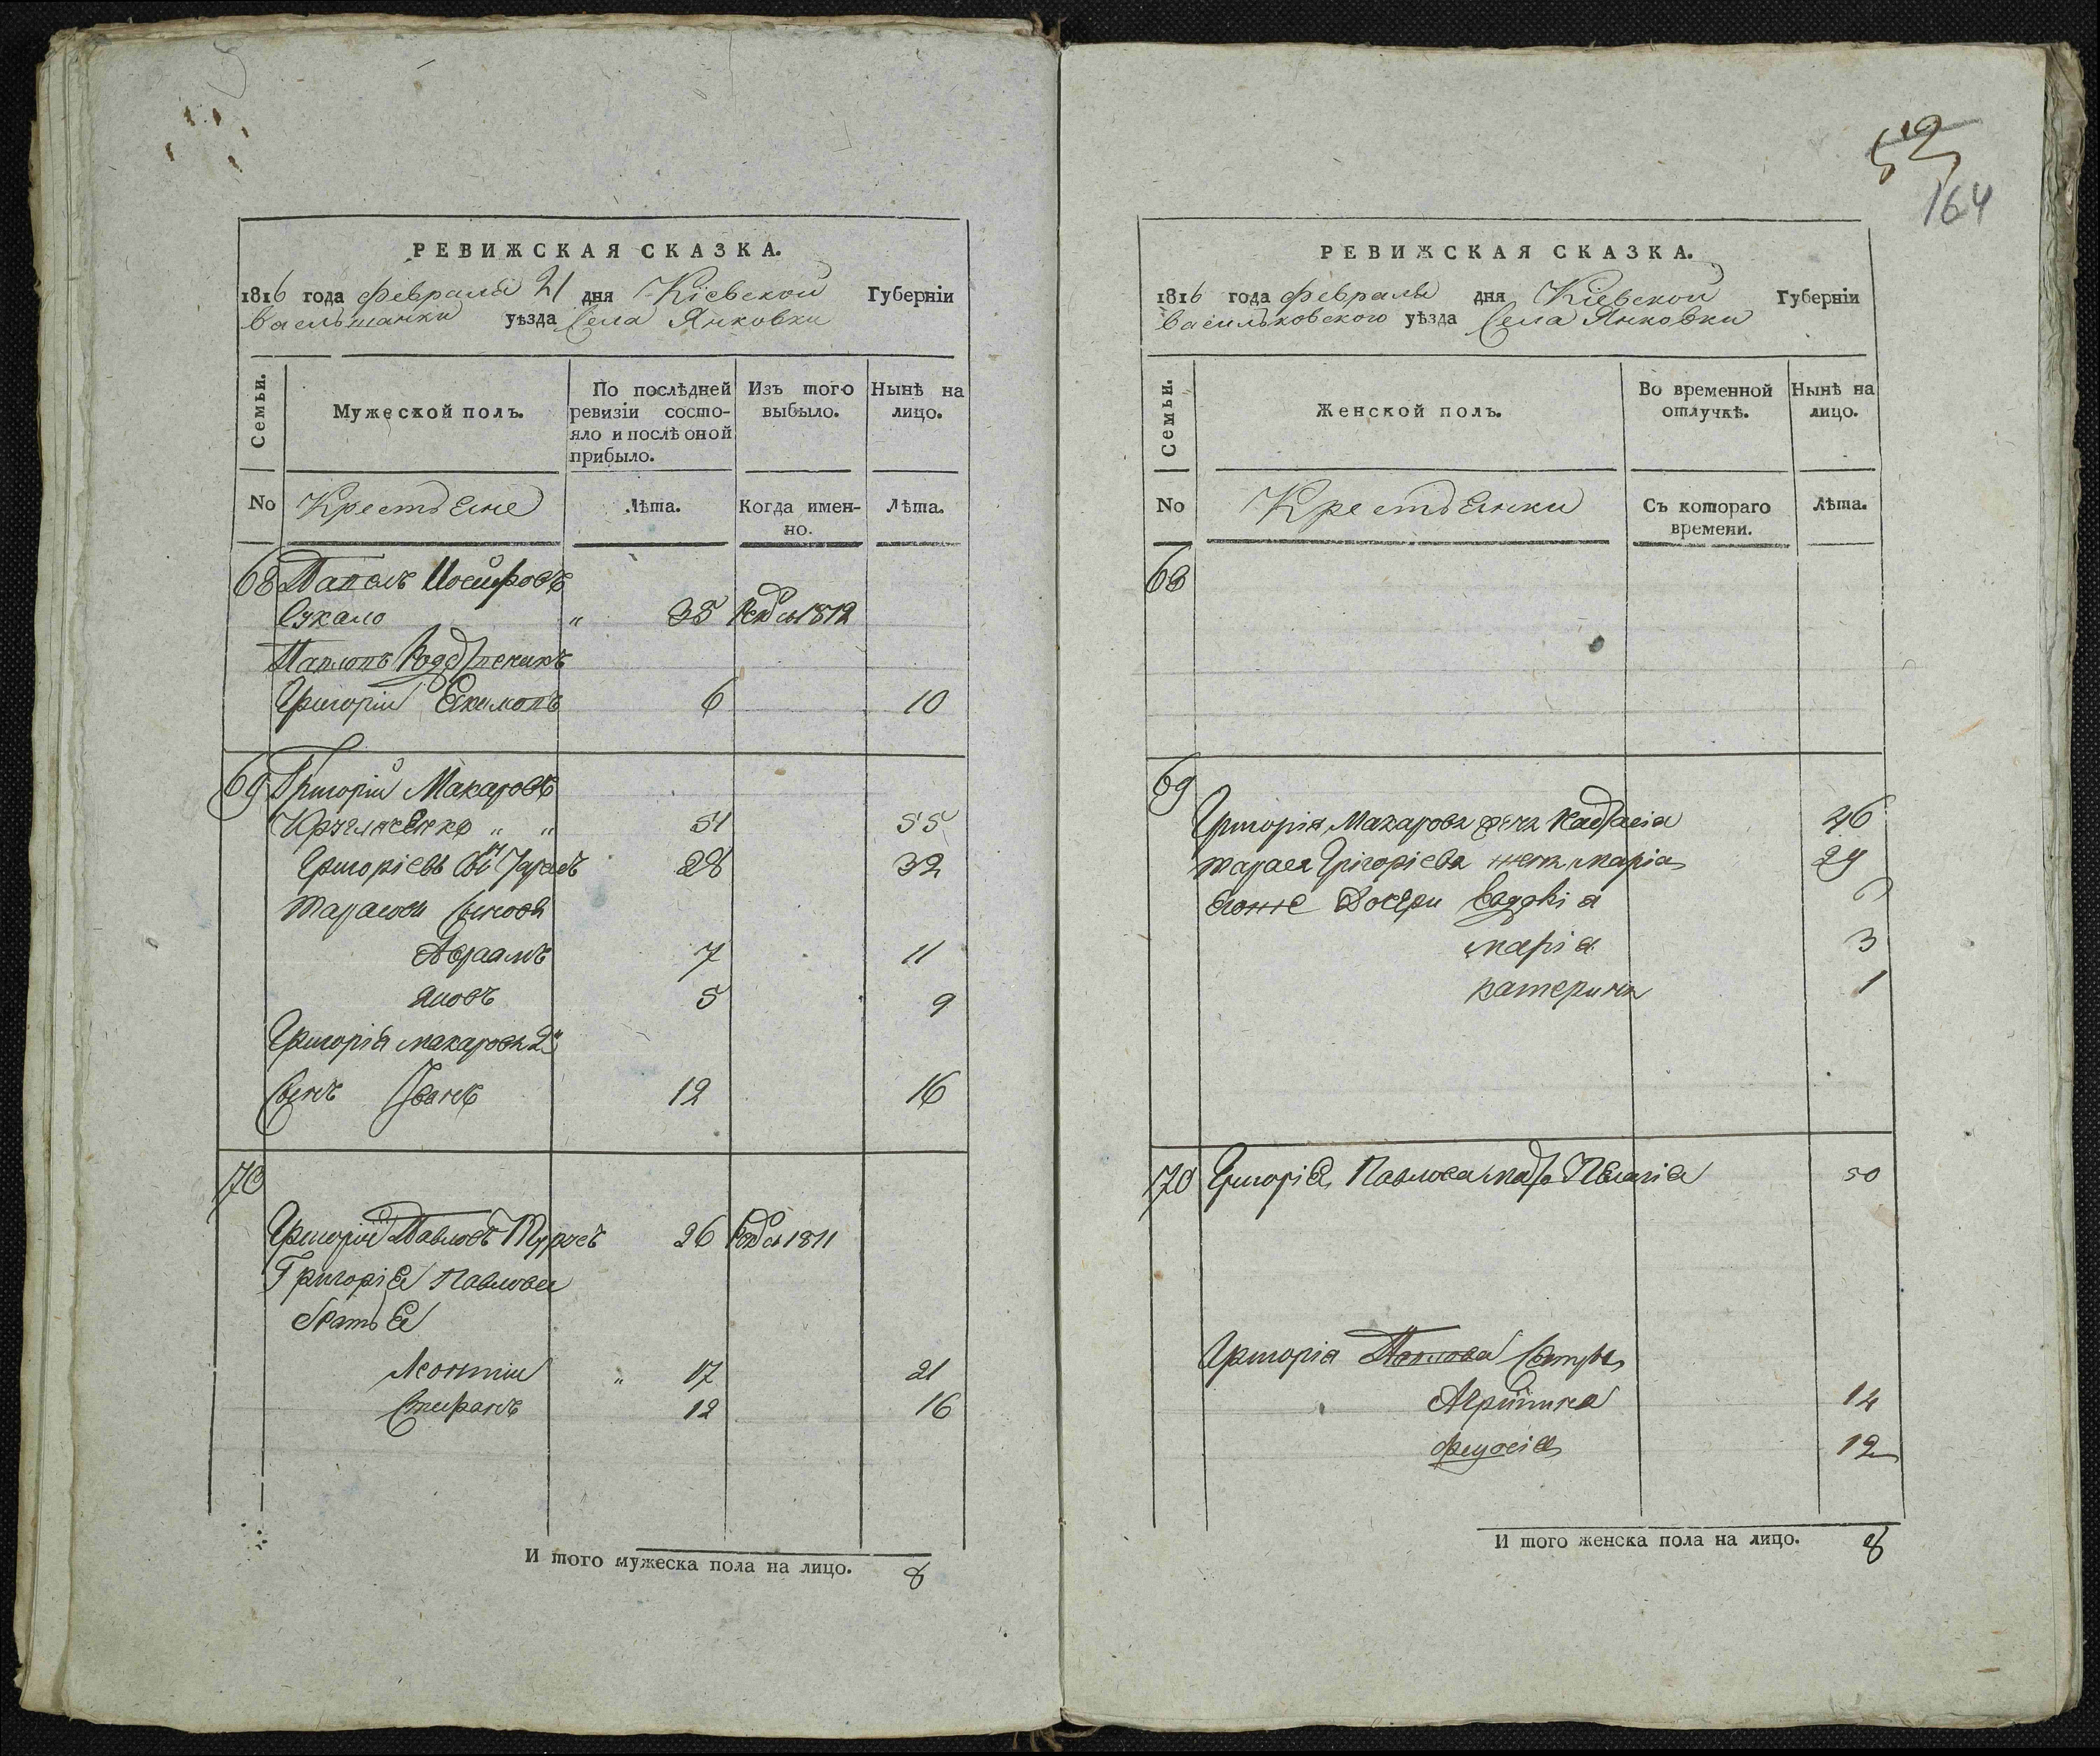 РЕВИЖСКАЯ СКАЗКА.
1816 года февраля 21 дня Кіевской Губерніи
уѣзда Села Янковки
Семьи.
Мужеской полъ.
По послѣдней ревизіи состо-
яло и послѣ оной
прибыло.
Изъ того
выбыло.
Нынѣ на
лицо.
No Крестьяне Лѣта. Когда имен-
но.
Лѣта.
68 Павелъ Іосифовъ
Сукало " 38 1812
Павловъ
Григорій Екимовъ 6 10
69 Григорій Макаровъ
" " 51 55
Григоріевъ Сынъ Тарасъ 28 32
Тарасови Синове
Авраамъ 7 11
Яковъ 5 9
Григорія Макарова 2й
Сынъ Іванъ 12 16
70
Григорій Павловъ 26 1811
Григорія Павлова
братья
Леонтии " 17 21
Стифанъ 12 16
И того мужеска пола на лицо. 8
52
164
РЕВИЖСКАЯ СКАЗКА.
1816 года февраля дня Кіевской Губерніи
Васильковского уѣзда Села Янковки
Семьи.
Женской полъ.
Во временной
отлучкѣ.
Нынѣ на
лицо.
No Крестьянки Съ котораго
времени.
Лѣта.
68
69
Григорія Макарова жена 46
Тараса Грігоріева жена Маріа 29
Егоже Дочери Евдокіа
маріа 3
катерина 1
70 Григорія Павлова Пелагія 50
Григорія Павлова Сестры
Агрипина 14
12
И того женска пола на лицо. 8